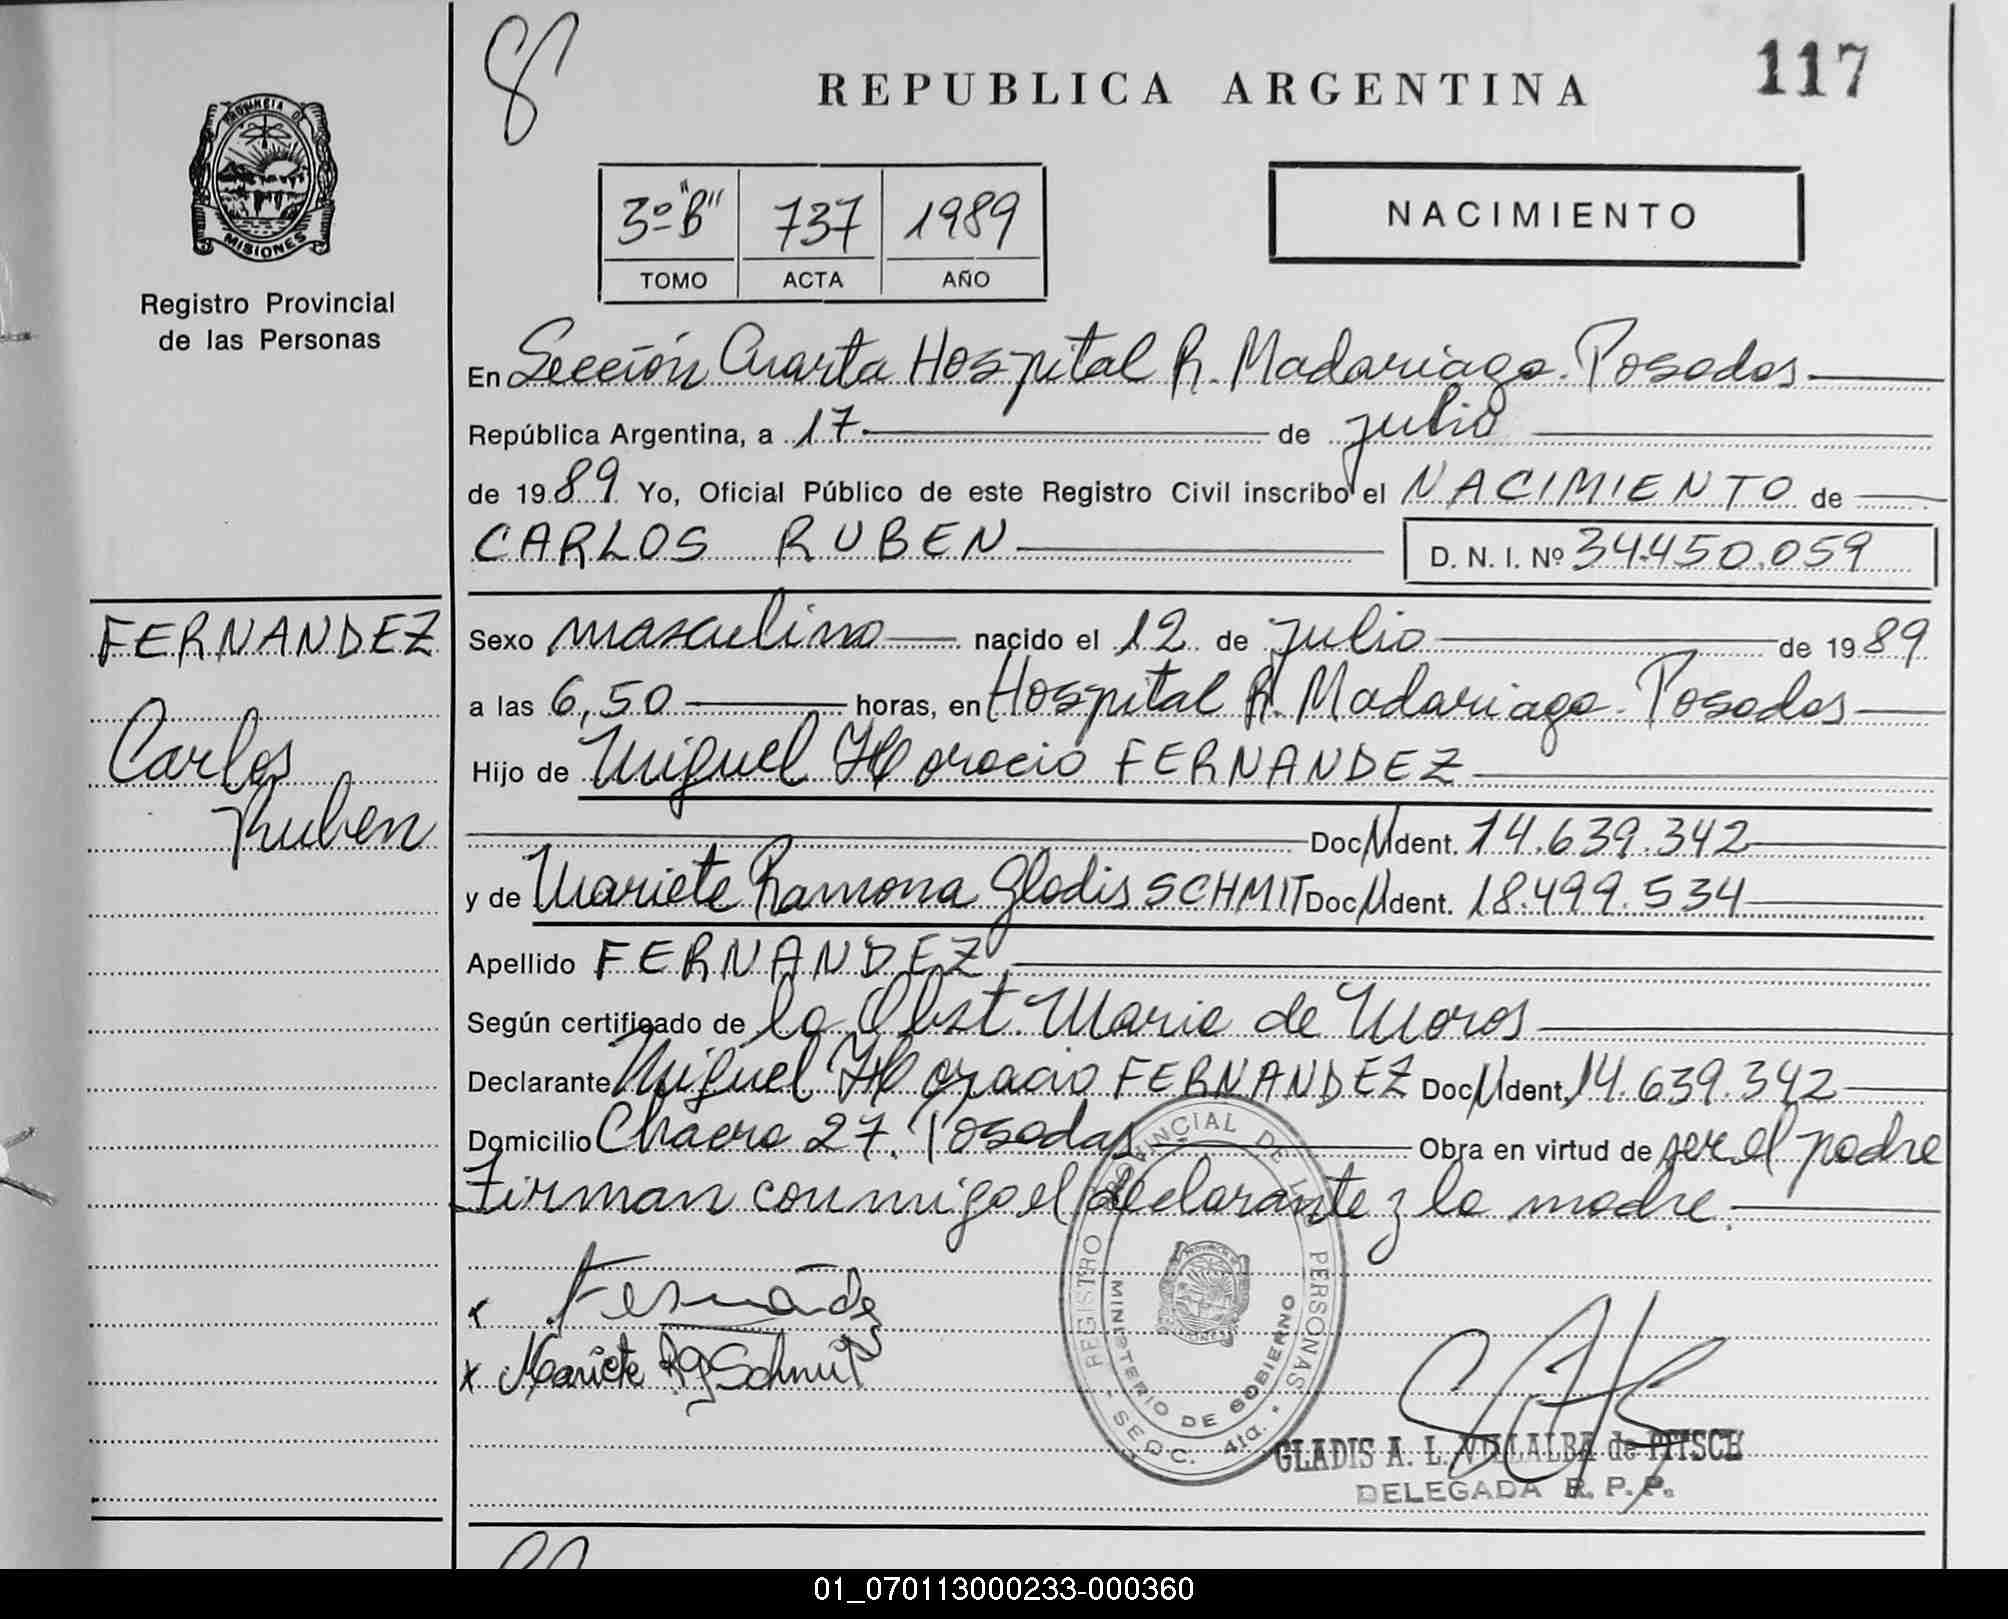 8
REPUBLICA ARGENTINA
117
PROVINCIA DE
MISIONES
Registro Provincial
de las Personas
3º "B" 737 1989
TOMO ACTA AÑO
NACIMIENTO
En Sección Cuarta Hospital R. Madariaga. Posadas
República Argentina, a 17 de julio
de 1989 Yo, Oficial Público de este Registro Civil inscribo el NACIMIENTO de
CARLOS RUBEN
D. N. I. Nº 34.450.059
FERNANDEZ
Carlos
Ruben
Sexo masculino nacido el 12 de julio de 1989
a las 6,50 horas, en Hospital R. Madariaga. Posadas
Hijo de Miguel Horacio FERNANDEZ
Doc. Ident. 14.639.342
y de Mariete Ramona Gladis SCHMIT Doc. Ident. 18.499.534
Apellido FERNANDEZ
Según certificado de la Obst. Maria de Moros
Declarante Miguel Horacio FERNANDEZ Doc. Ident. 14.639.342
Domicilio Chacra 27. Posadas Obra en virtud de ser el padre
Firman conmigo el declarante y la madre.
x Fernández
x Mariete R G Schmit
REGISTRO PROVINCIAL DE LAS PERSONAS
MINISTERIO DE GOBIERNO
SECC. 4ta.
GLADIS A. L. VILLALBA de PITSCH
DELEGADA R. P. P.
01_070113000233-000360